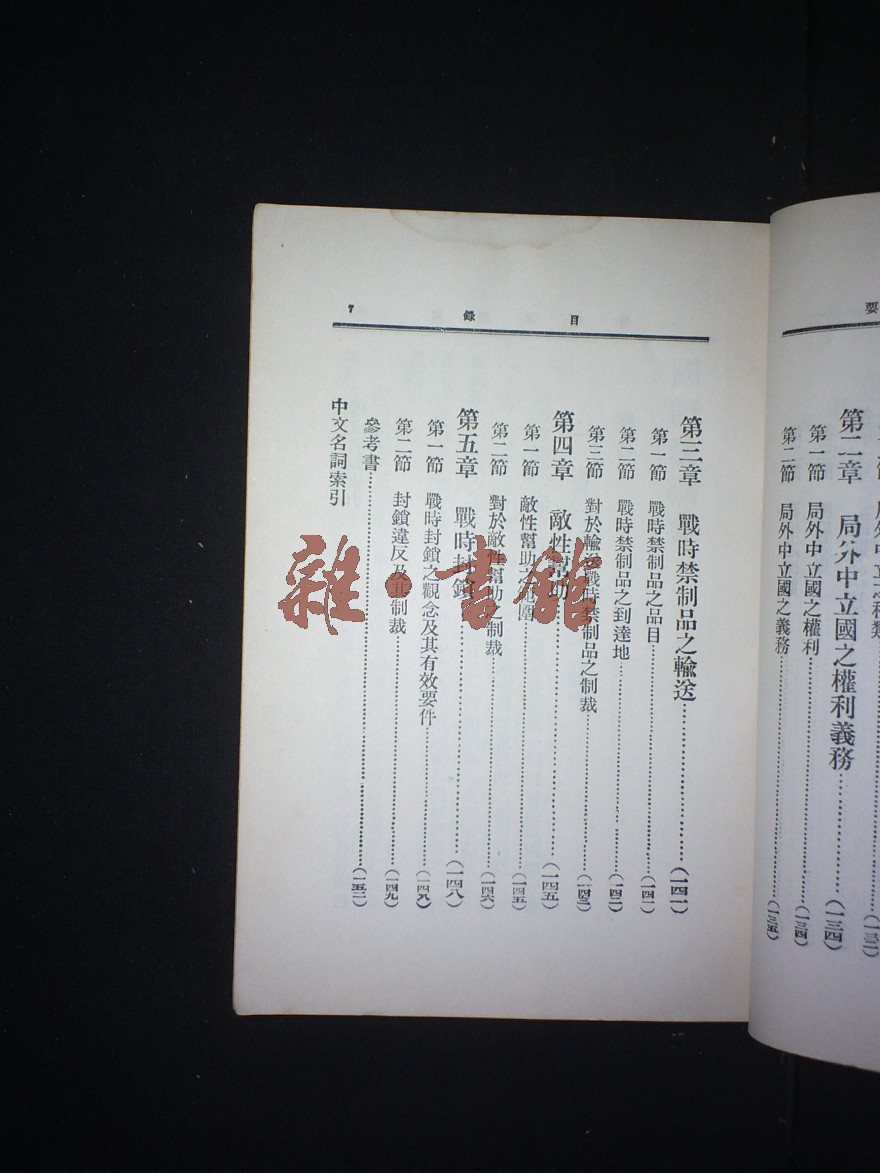 要
第二章　局外中立國之權利義務……(一三四)
第一節　局外中立國之權利……(一三四)
第二節　局外中立國之義務……(一三五)
目錄 7
第三章　戰時禁制品之輸送……(一四一)
第一節　戰時禁制品之品目……(一四一)
第二節　戰時禁制品之到達地……(一四二)
第三節　對於輸送戰時禁制品之制裁……(一四三)
第四章　敵性幫助……(一四五)
第一節　敵性幫助之……(一四五)
第二節　對於敵性幫助之制裁……(一四六)
第五章　戰時封鎖……(一四八)
第一節　戰時封鎖之觀念及其有效要件……(一四八)
第二節　封鎖違反及其制裁……(一四九)
參考書……(一五二)
中文名詞索引
雜·書館